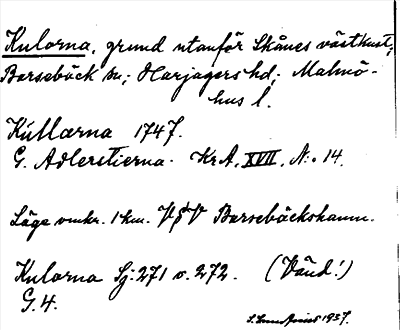 Kulorna, grund utanför Skånes västkust;
Barsebäck sn; Harjagers hd; Malmö-
hus l.
Kullærna 1747.
G. Adlerstierna. KrA, XVII, N:o 14.
Läge omkr. 1 km. V§V Barsebäckshamn.
Kulorna Sj: 271 o. 272. (Vänd!)
G. 4.
1937.